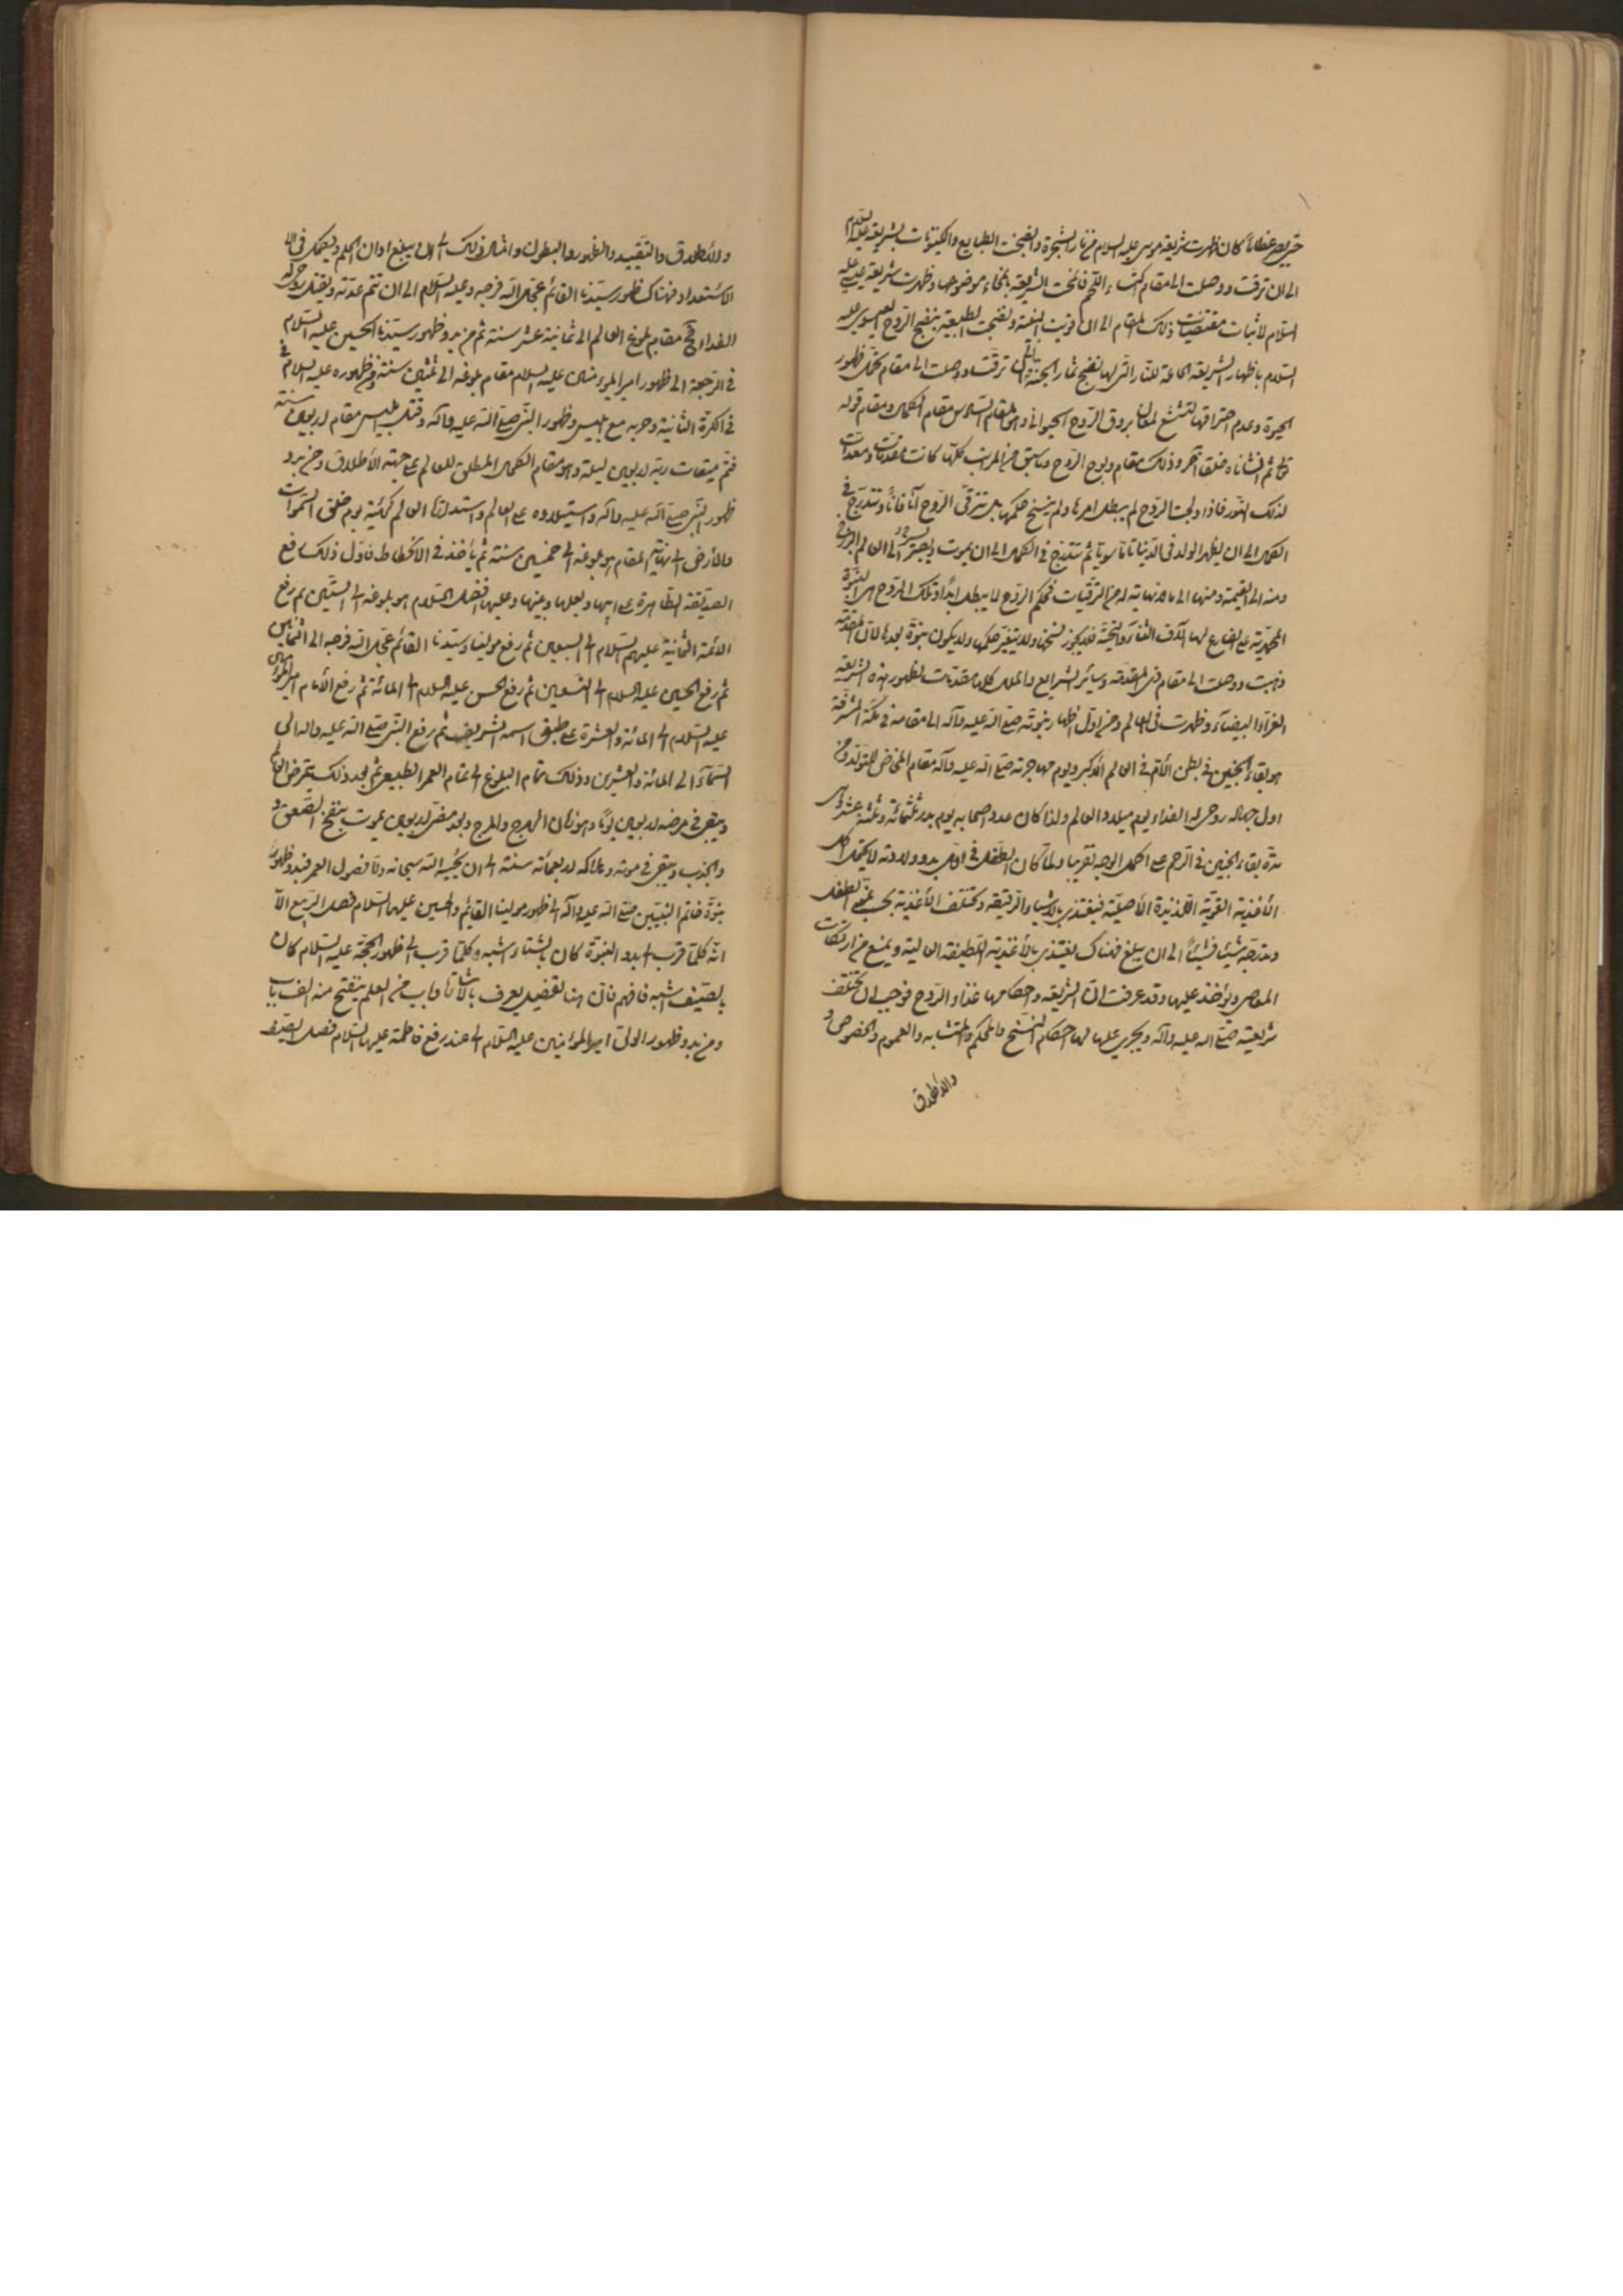 حتى يصير عظاماً كان ظهرت شريعة موسى عليه السلام من نار الشجرة وانضجت الطبايع والكينونات بشريعته عليه السلام
الى ان ترقت ووصلت الى مقام اكتساء اللحم فانمحت الشريعة بانمحاء موضوعها وظهرت شريعة عيسى عليه
السلام لاثبات مقتضيات ذلك المقام الى ان قويت البنية ونضجت الطبيعة بنضج الروح العيسوي عليه
السلام باظهار الشريعة الجامعة للنار التي بها نضج ثمار الجنة الى ان ترقت ووصلت الى مقام تحمل ظهور
الحيوة وعدم احتراقها لتشعشع لمعان بروق الروح الحيواني وهو المقام السادس مقام الكمال ومقام قوله
تعالى ثم انشأناه خلقا آخر وذلك مقام ولوج الروح وما سبق من المراتب كلها كانت مقدمات ومعدات
لذلك الظهور فاذا ولجت الروح لم يبطل امرها ولم ينسخ حكمها بل تترقى الروح آنا فآناً وتتدرج في
الكمال الى ان يظهر الولد في الدنيا تاما سويا ثم تتدرج في الكمال الى ان يموت ويصير الى العالم البرزخ
ومنه الى القيمة ومنها الى ما لا نهاية له من الترقيات فحكم الروح لا يبطل ابداً وتلك الروح هي النبوة
المحمدية على الصادع بها آلاف الثناء والتحية فلا يجوز نسخها ولا يتغير حكمها ولا يكون نبوة بعدها لان المقدمة
ذهبت ووصلت الى مقام ذي المقدمة وسائر الشرايع والملل كلها مقدمات لظهور هذه الشريعة
الغراء البيضاء وظهرت في العالم ومن اول اظهار نبوته صلى الله عليه وآله الى مقامه في مكة المشرفة
هو بقاء الجنين في بطن الأم في العالم الأكبر ويوم مهاجرته صلى الله عليه وآله مقام المخاض للتولد ومن
اول جهاده روحي له الفداء يوم ميلاد العالم ولذا كان عدد اصحابه يوم بدر ثلثمائة وثلثة عشر وهي
مدة بقاء الجنين في الرحم على اكمل الوجه تقريبا ولما كان الطفل في اول بدو ولادته لا يحتمل اكل
الأغذية القوية اللذيذة الأصلية فيغتذي بالاشياء الرقيقة وتختلف الأغذية بحسب نمو الطفل
وتدرجه شيئا فشيئاً الى ان يبلغ فهناك يغتذي بالأغذية اللطيفة العالية ويمنع من ارتكاب
المعاصي ويؤخذ عليها وقد عرفت ان الشريعة واحكامها غذاء الروح فوجب ان تختلف
شريعته صلى الله عليه وآله ويجري عليها لها احكام النسخ والمحكم والمتشابه والعموم والخصوص و
والاطلاق
والاطلاق والتقييد والظهور والبطون وامثال ذلك الى ان يبلغ اوان الحلم ويكمل في
الاستعداد فهناك ظهور سيدنا القائم عجل الله فرجه وعليه السلام الى ان تتم عدته ويقتل روحي له
الفداء في مقام بلوغ العالم الى ثمانية عشر سنة ثم من بدو ظهور سيدنا الحسين عليه السلام
في الرجعة الى ظهور امير المؤمنين عليه السلام مقام بلوغه الى ثلثين سنة ومن ظهوره عليه السلام في
في الكرة الثانية وحربه مع ابليس وظهور النبي صلى الله عليه وآله وقتل ابليس مقام اربعين سنة
فتم ميقات ربه اربعين ليلة وهو مقام الكمال المطلق للعالم على جهة الأطلاق ومن بدو
ظهور النبي صلى الله عليه وآله واستيلاؤه على العالم واستدارة العالم كهيئة يوم خلق السموات
والأرض الى نهاية المقام هو بلوغه الى خمسين سنة ثم يأخذ في الانحطاط فاول ذلك رفع
الصديقة الطاهرة على ابيها وبعلها وبنيها وعليها افضل السلام هو بلوغه الى الستين ثم رفع
الائمة الثمانية عليهم السلام الى السبعين ثم رفع مولينا وسيدنا القائم عجل الله فرجه الى الثمانين
ثم رفع الحسين عليه السلام الى التسعين ثم رفع الحسن عليه السلام الى المائة ثم رفع الأمام امير المؤمنين
عليه السلام الى المائة والعشرة على طبق اسمه الشريف ثم رفع النبي صلى الله عليه وآله الى
السماء الى المائة والعشرين وذلك تمام البلوغ الى تمام العمر الطبيعي ثم بعد ذلك يتمرض العالم
ويبقى في مرضه اربعين يوماً وهو زمان الهرج والمرج وبعد مضي اربعين يموت بنفخ الصعق و
والجذب ويبقى في موته وهلاكه اربعمائة سنة الى ان يحييه الله سبحانه واما فصول العمر فبدو ظهور
نبوة خاتم النبيين صلى الله عليه وآله الى ظهور مولينا القائم والحسين عليهما السلام فصل الربيع الا
انه كلما قرب الى بدو النبوة كان بالشتاء اشبه وكلما قرب الى ظهور الحجة عليه السلام كان
بالصيف اشبه فافهم فان هنا تفصيل يعرف بالاشارة وباب من العلم ينفتح منه الف باب
ومن بدو ظهور الولي امير المؤمنين عليه السلام الى عند رفع فاطمة عليها السلام فصل الصيف